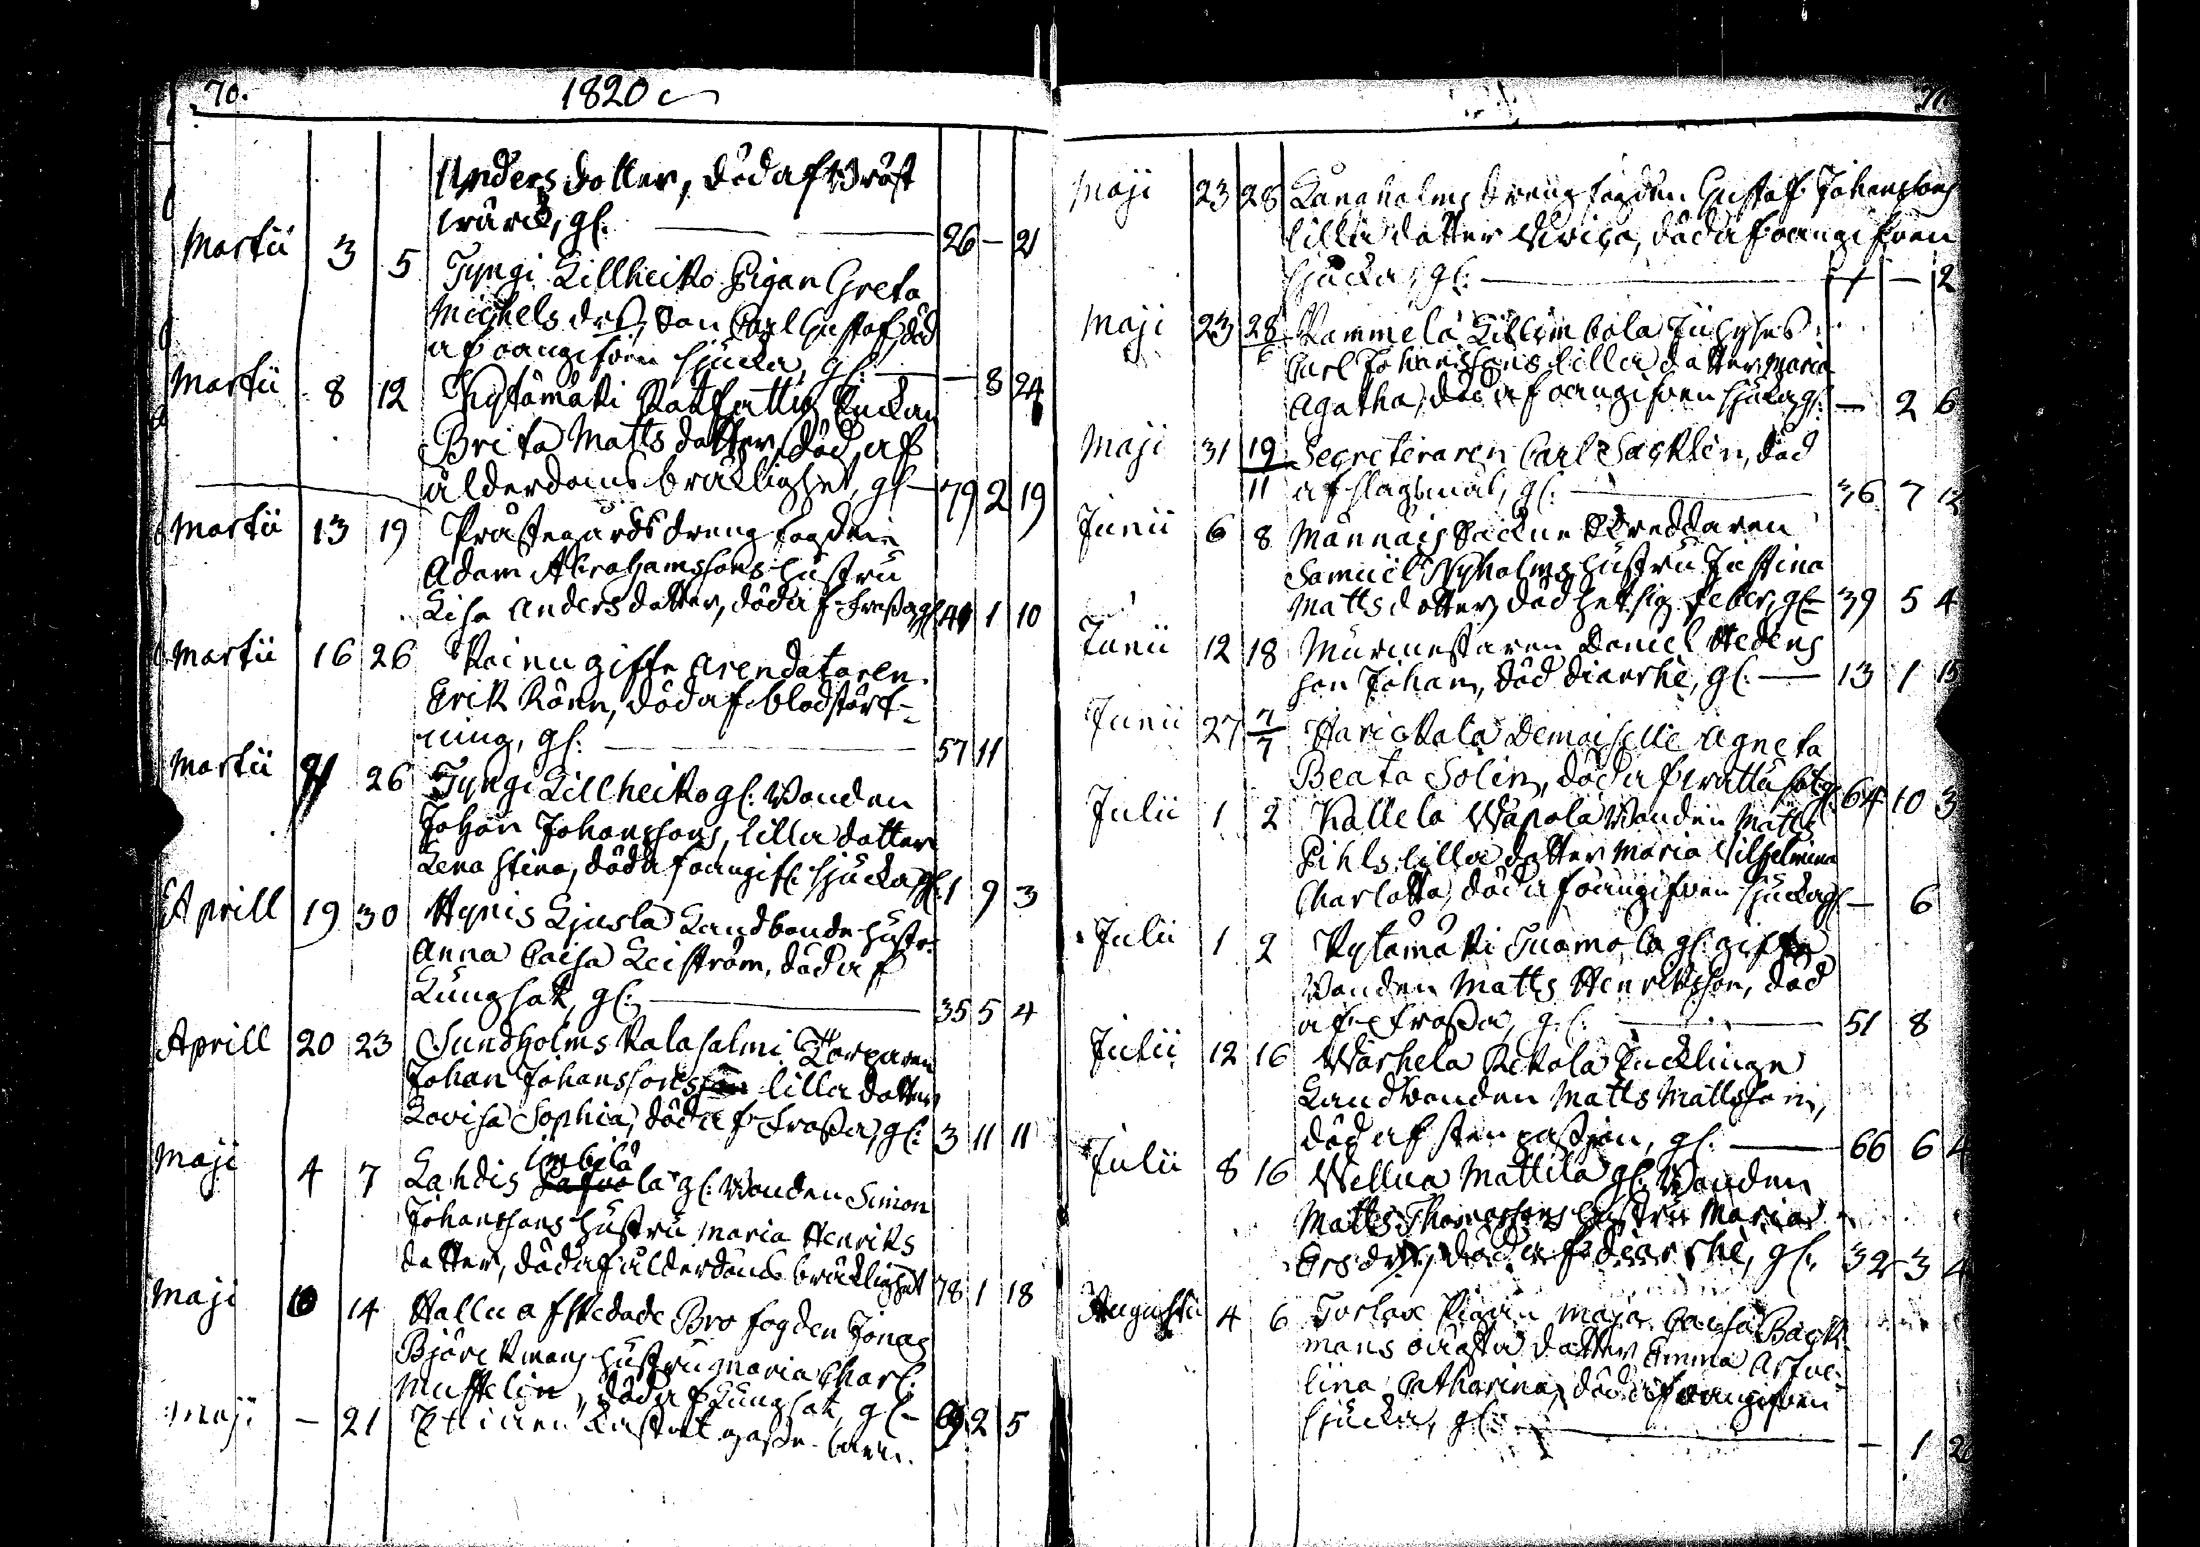 70.
1820
Anders dotter, död af Bröst
wärck, gl. 26 - 21
Martii 3 5 Tyngi Lillheiko Pigan Greta
Michels dr, son Carl Gustaf, död
af oangifven sjucka, gl. - 8 24
Martii 8 12 Kytämäki Rotfattig Enckan
Brita Matts dotter, död af
ålderdoms bräcklighet, gl 79 2 19
Martii 13 19 Prästegårds dreng fogden
Adam Abrahamssons hustru
Lisa Anders dotter, död af frossa, gl 41 1 10
Martii 16 26 giffte Arendatoren
Erik Rönn, död af blodstört-
ning, gl. 57 11
Martii 26 Tyngi Lillheiko gl. Bonden
Johan Johanssons, lilla dotter
Lena Stina, död af oangifl. sjucka, gl. 1 9 3
Aprill 19 30 Hynis Ljusla Landbonde hustr.
Anna Caisa Leiström, död af
Lungsot, gl. 35 5 4
Aprill 20 23 Sundholms Kalasalmi Torparen
Johan Johanssons lilla dotter
Lovisa Sophia, död af frossa, gl. 3 11 11
Maji 4 7 Lahdis Imbilä gl. Bonden Simon
Johanssons hustru Maria Henriks
dotter, död af ålderdoms bräcklighet 78 1 18
Maji 10 14 Hallu afskedade Bro fogden Jonas
Björckmans hustru Maria Charl.
Mustelin, död af Lungsot, gl - 69 2 5
Maji - 21 Ett gosse barn.
Maji 23 28 Lånaholms dreng fogden Gustaf Johanssons
lilla dotter Ulrica, död af oangifven
sjucka, gl. - 2
Maji 23 28 Rammela
Carl Johanssons lilla dotter Maria
Agatha, död af oangifven sjucka, gl. - 2 6
Maji 31 19/11 Secreteraren Carl Sacklen, död
af slagsmål, gl. 36 7 12
Junii 6 8 Männäis Backue Skreddaren
Samuel Nyholms hustru Justina
Matts dotter, död hetsig feber, gl 39 5 4
Junii 12 18 Murmestaren Daniel Hedens
son Johan, död diarrhè, gl. 13 1 15
Junii 27 2/7 Harickala Demoiselle Agneta
Beata Solin, död af wattusot gl. 64 10 3
Julii 1 2 Kallela Wäpola Bonden Matts
Pihls lilla dotter Maria Vilhelmina
Charlotta, död af oangifven sjucka gl - 6
Julii 1 2 Kytämäki Tuomola gl. giffte
Bonden Matts Henriksson, död
af frossa, gl. 51 8
Julii 12 16 Warhela Rekola Encklinge
Landbonden Matts Mattsson,
död af sten passion, gl. 66 6 4
Julii 8 16 Wellua Mattila gl. Bonden
Matts Thomassons hustru Maria
Ersdr, död af diarrhè, gl. 32 3 4
Augusti 4 6 Torlax Pigan Maja Caisa Back-
mans oägta dotter Emma
lina Catharina, död af oangifven
sjucka, gl. - 1